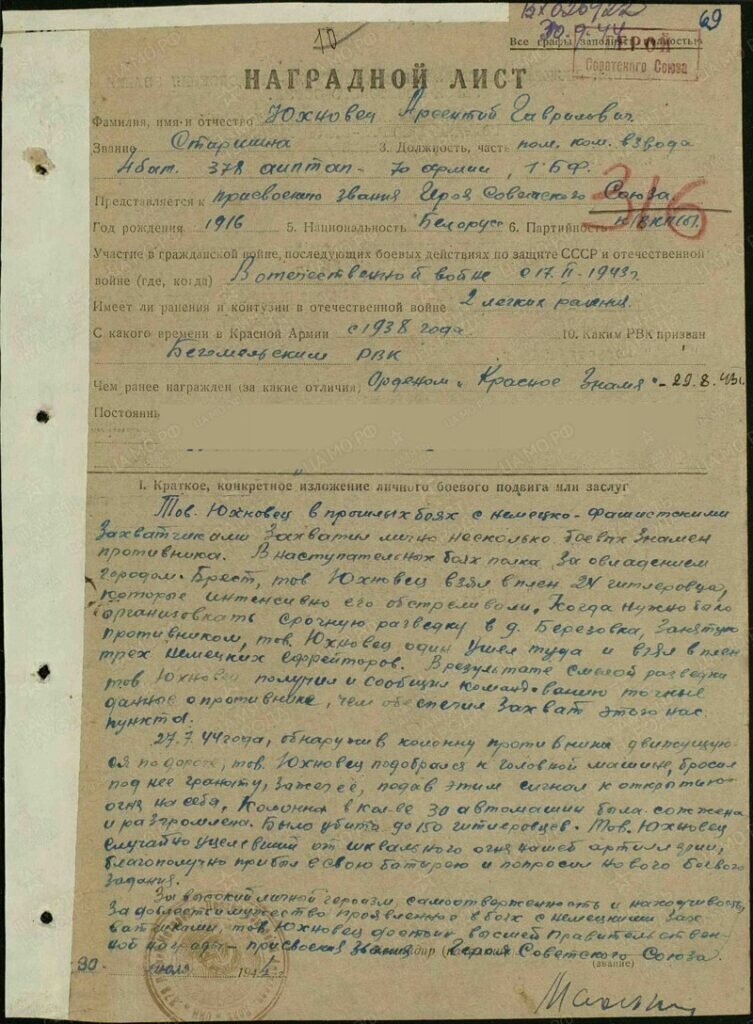 69
30.9.44
10
Все графы заполнять полностью
ГЕРОЙ
Советского Союза
НАГРАДНОЙ ЛИСТ
Фамилия, имя и отчество Юхновец Арсентий Гаврилович.
Звание Старшина 3. Должность, часть пом. ком. взвода
4 бат. 378 аиптап - 70 армии, 1 БФ.
Представляется к присвоению звания Героя Советского Союза
316
Год рождения 1916 5. Национальность Белорус 6. Партийность к/ВКП(б).
Участие в гражданской войне, последующих боевых действиях по защите СССР и отечественной
войне (где, когда) В отечественной войне с 17.II-1943г.
Имеет ли ранения и контузии в отечественной войне 2 легких ранения.
С какого времени в Красной Армии с 1938 года 10. Каким РВК призван
Бегомельским РВК
Чем ранее награжден (за какие отличия) Орденом "Красное Знамя" - 29.8.43г.
Постоянн
I. Краткое, конкретное изложение личного боевого подвига или заслуг
Тов. Юхновец в прошлых боях с немецко-фашистскими
захватчиками захватил лично несколько боевых знамен
противника. В наступательных боях полка за овладением
городом Брест, тов Юхновец взял в плен 24 гитлеровца,
которые интенсивно его обстреливали. Когда нужно было
организовать срочную разведку в д. Березовка, занятую
противником, тов. Юхновец один ушел туда и взял в плен
трех немецких ефрейторов. В результате смелой разведки
тов Юхновец получил и сообщил командованию точные
данные о противнике, чем обеспечил захват этого нас.
пункта.
27.7.44 года, обнаружив колонну противника движущую-
ся по дороге, тов. Юхновец подобрался к головной машине, бросил
под нее гранату, зажег её, подав этим сигнал к открытию
огня на себя. Колонна в кол-ве 30 автомашин была сожжена
и разгромлена. Было убито до 150 гитлеровцев. Тов. Юхновец
случайно уцелевший от шквального огня нашей артиллерии,
благополучно прибыл в свою батарею и попросил нового боевого
задания.
За высокий личной героизм, самоотверженность и находчивость,
за доблесть и мужество проявленное в боях с немецкими зах-
ватчиками, тов Юхновец достоин высшей Правительствен-
ной награды - присвоения звания Героя Советского Союза.
30 июля 194 г.
(звание)